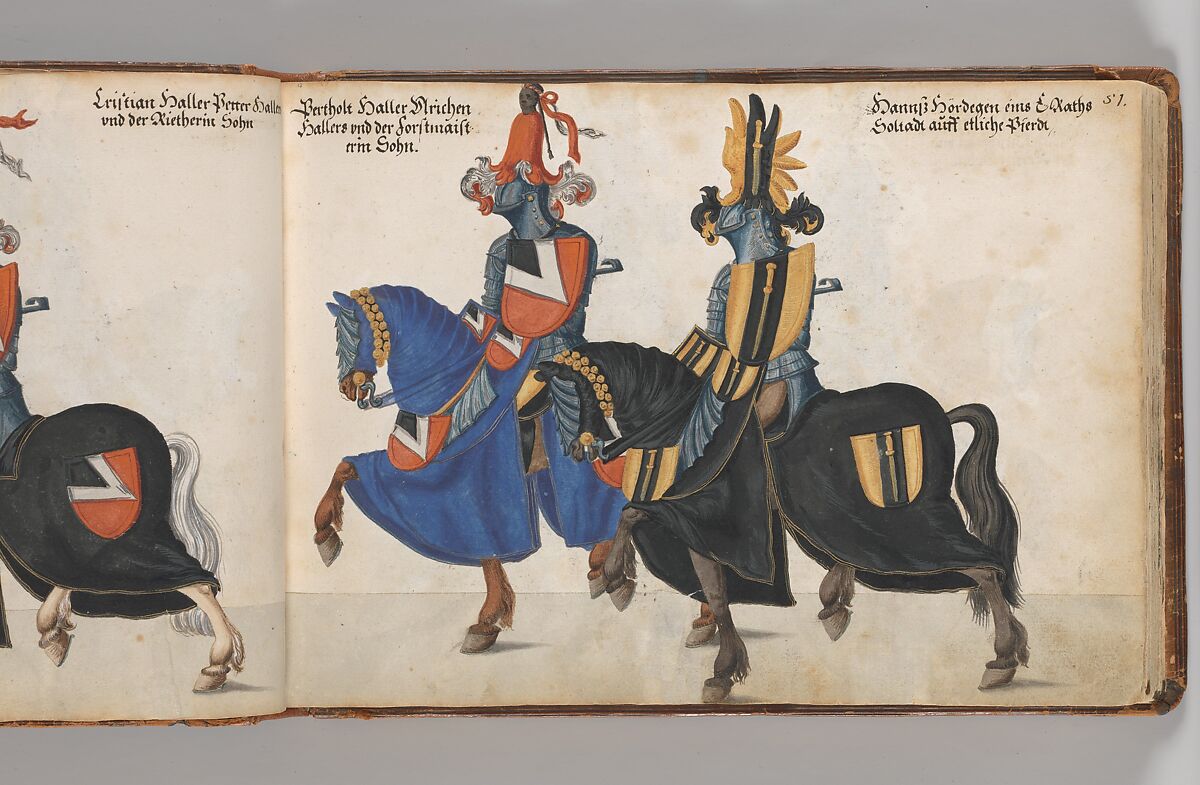 Cristian Haller Petter Haller
vnd der Rietherin Sohn
Pertholt Haller Vlrichen
Hallers vnd der Forstmaist
erin Sohn.
Hannß Hördegen eins E Raths
Soltadt auff etliche Pferdt
51.